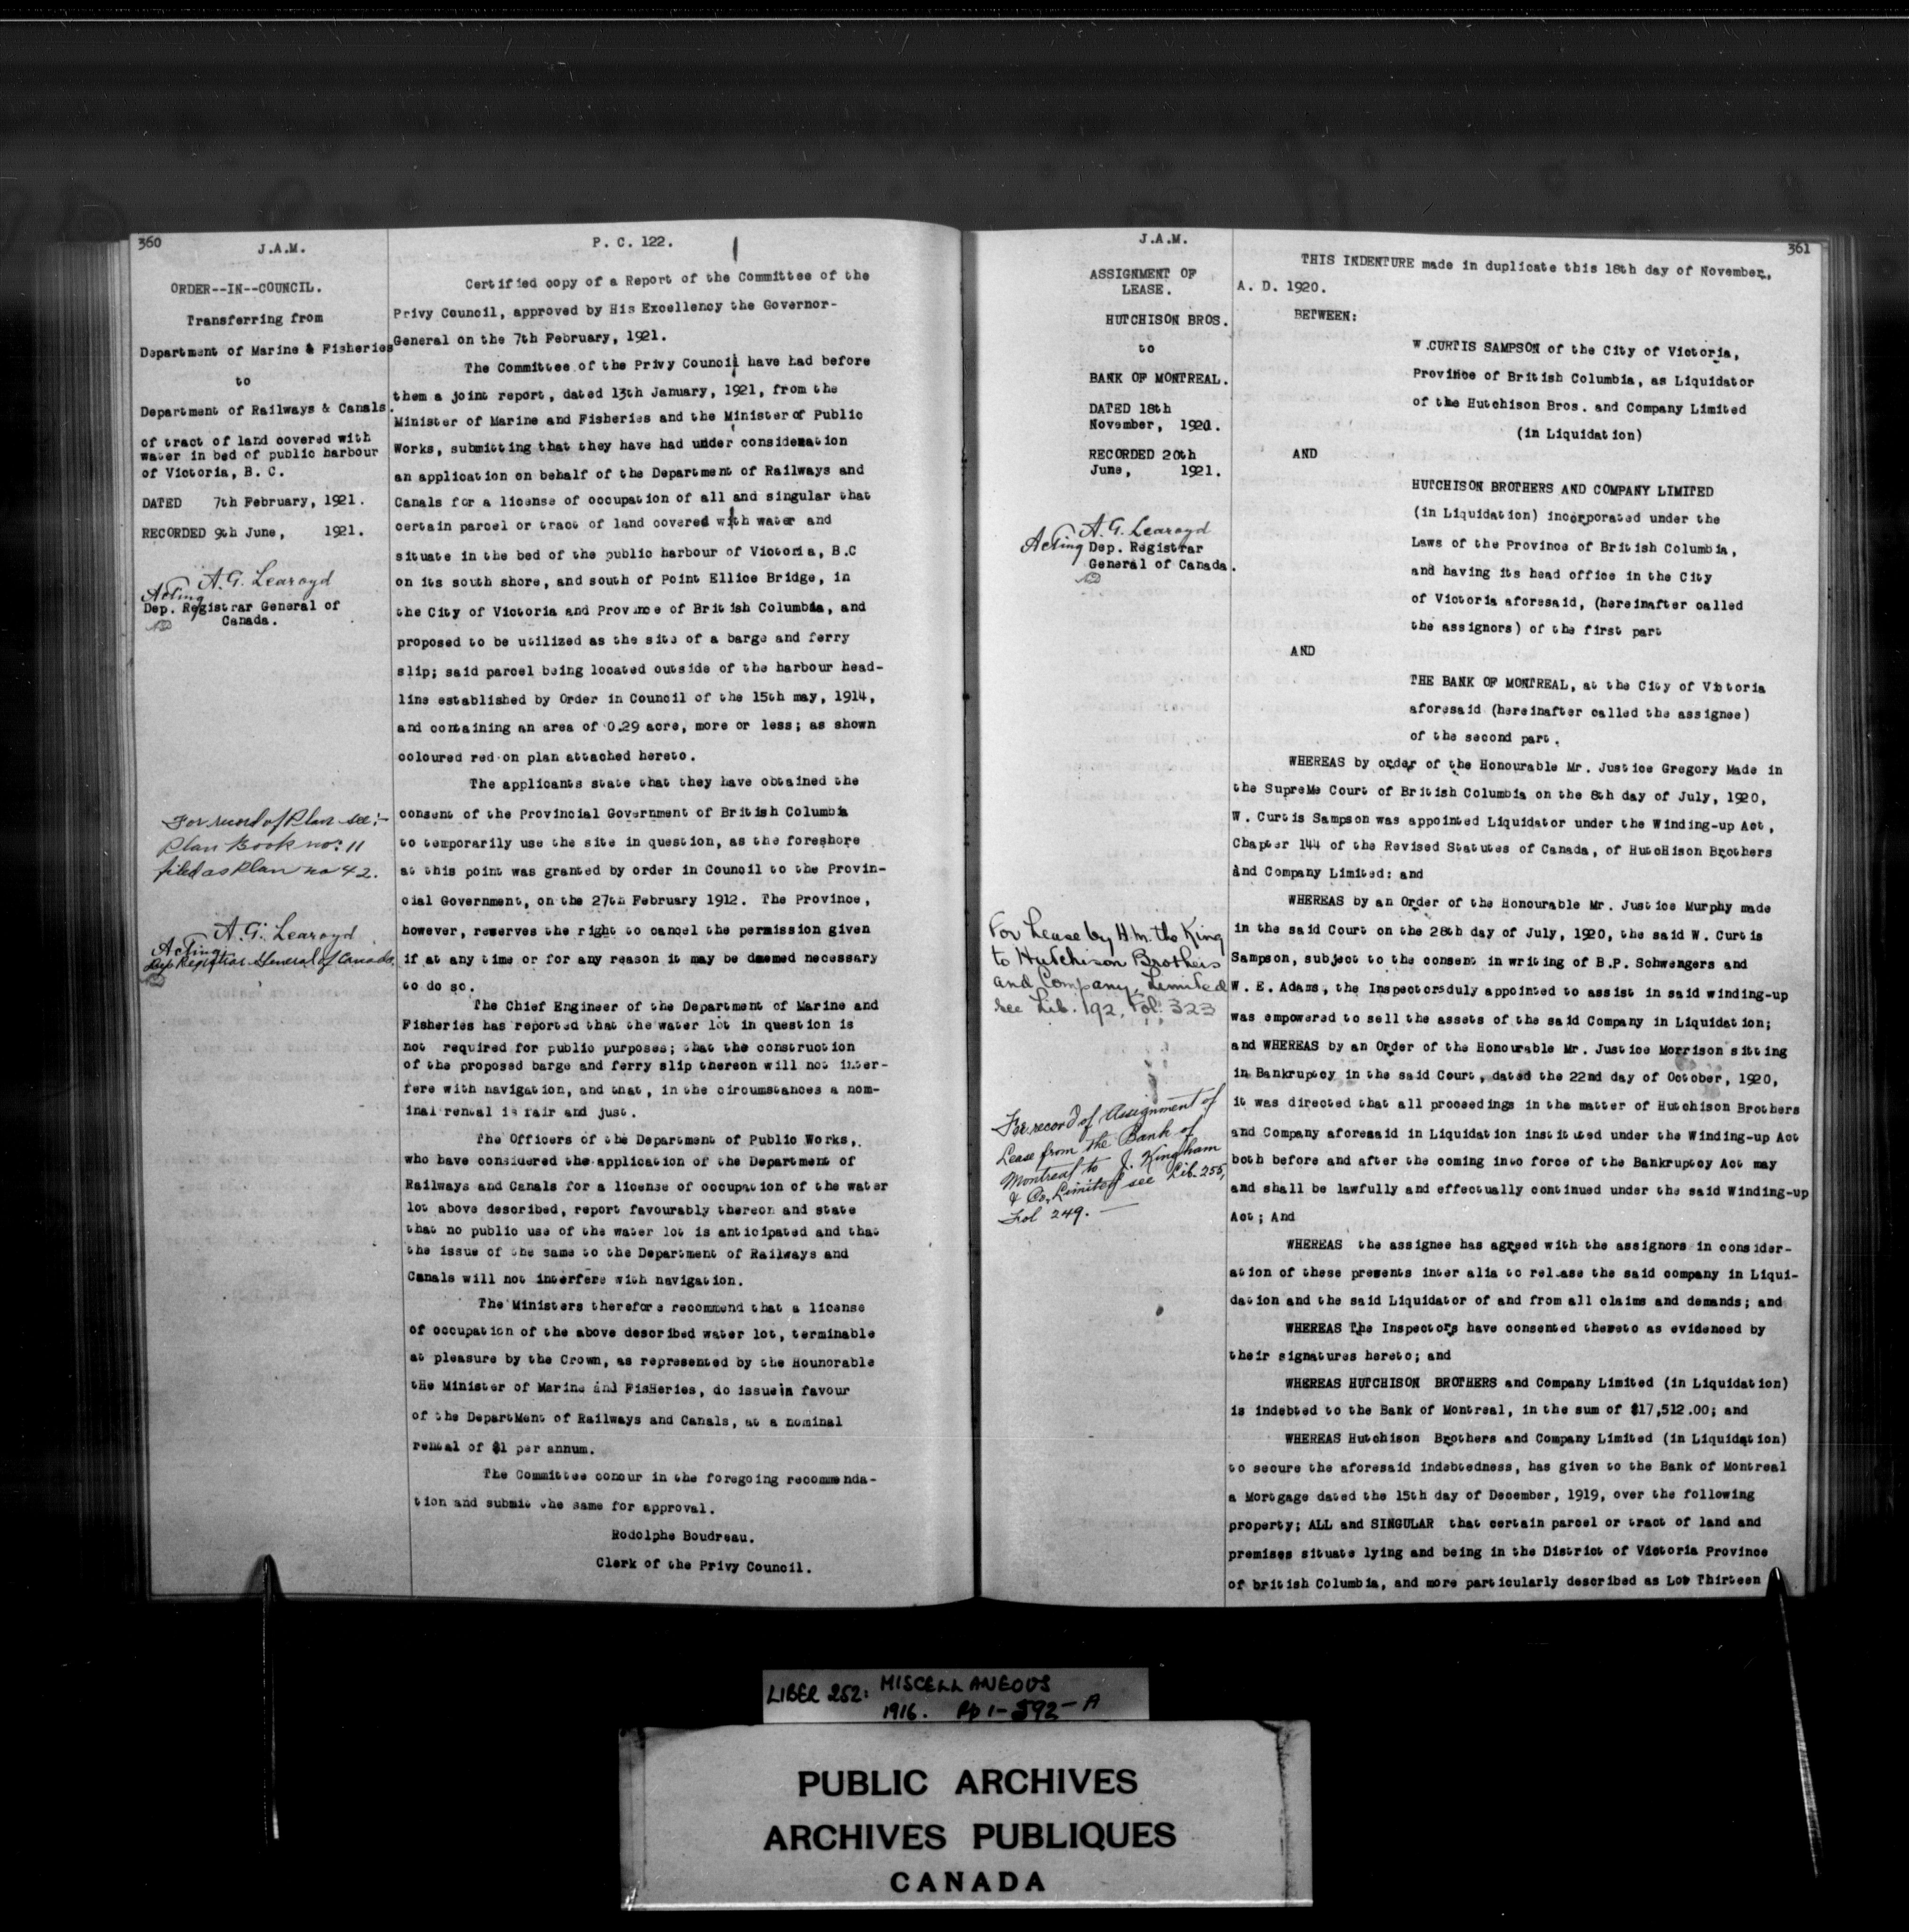 360
J.A.M.
ORDER--IN--COUNCIL.
Transferring from
Department of Marine & Fisheries
to
Department of Railways & Canals.
of tract of land covered with
water in bed of public harbour
of Victoria, B. C.
DATED 7th February, 1921.
RECORDED 9th June, 1921.
A. G. Learoyd
Acting
Dep. Registrar General of
Canada.
For record of Plan see:-
Plan Book no: 11
filed as Plan no 42.
A. G. Learoyd
Acting
Dep Registrar General of Canada.
P. C. 122.
Certified copy of a Report of the Committee of the
Privy Council, approved by His Excellency the Governor-
General on the 7th February, 1921.
The Committee of the Privy Council have had before
them a joint report, dated 13th January, 1921, from the
Minister of Marine and Fisheries and the Minister of Public
Works, submitting that they have had under consideration
an application on behalf of the Department of Railways and
Canals for a license of occupation of all and singular that
certain parcel or tract of land covered with water and
situate in the bed of the public harbour of Victoria, B.C
on its south shore, and south of Point Ellice Bridge, in
the City of Victoria and Province of British Columbia, and
proposed to be utilized as the site of a barge and ferry
slip; said parcel being located outside of the harbour head-
line established by Order in Council of the 15th may, 1914,
and containing an area of 0.29 acre, more or less; as shown
coloured red on plan attached hereto.
The applicants state that they have obtained the
consent of the Provincial Government of British Columbia
to temporarily use the site in question, as the foreshore
at this point was granted by order in Council to the Provin-
cial Government, on the 27th February 1912. The Province,
however, reserves the right to cancel the permission given
if at any time or for any reason it may be deemed necessary
to do so.
The Chief Engineer of the Department of Marine and
Fisheries has reported that the water lot in question is
not required for public purposes; that the construction
of the proposed barge and ferry slip thereon will not inter-
fere with navigation, and that, in the circumstances a nom-
inal rental is fair and just.
The Officers of the Department of Public Works,
who have considered the application of the Department of
Railways and Canals for a license of occupation of the water
lot above described, report favourably thereon and state
that no public use of the water lot is anticipated and that
the issue of the same to the Department of Railways and
Canals will not interfere with navigation.
The Ministers therefore recommend that a license
of occupation of the above described water lot, terminable
at pleasure by the Crown, as represented by the Hounorable
tHe Minister of Marine and FisHeries, do issue in favour
of the DepartMent of Railways and Canals, at a nominal
rental of $1 per annum.
The Committee concur in the foregoing recommenda-
tion and submit the same for approval.
Rodolphe Boudreau.
Clerk of the Privy Council.
J.A.M.
361
ASSIGNMENT OF
LEASE.
HUTCHISON BROS.
to
BANK OF MONTREAL.
DATED 18th
November, 1920.
RECORDED 20th
June, 1921.
A. G. Learoyd
Acting Dep. Registrar
General of Canada.
For Lease by H.M. the King
to Hutchison Brothers
and Company, Limited
see Lib. 192, Fol: 323
For record of Assignment of
Lease from the Bank of
Montreal to J. Kingham
& Co, Limited see Lib. 255,
Fol 249.
THIS INDENTURE made in duplicate this 18th day of November,
A. D. 1920.
BETWEEN:
W.CURTIS SAMPSON of the City of Victoria,
Province of British Columbia, as Liquidator
of the Hutchison Bros. and Company Limited
(in Liquidation)
AND
HUTCHISON BROTHERS AND COMPANY LIMITED
(in Liquidation) incorporated under the
Laws of the Province of British Columbia,
and having its head office in the City
of Victoria aforesaid, (hereinafter called
the assignors) of the first part
AND
THE BANK OF MONTREAL, at the City of Victoria
aforesaid (hereinafter called the assignee)
of the second part.
WHEREAS by order of the Honourable Mr. Justice Gregory Made in
the SupreMe Court of British Columbia on the 8th day of July, 1920,
W. Curtis Sampson was appointed Liquidator under the Winding-up Act,
Chapter 144 of the Revised Statutes of Canada, of HutcHison Brothers
And Company Limited: and
WHEREAS by an Order of the Honourable Mr. Justice Murphy made
in the said Court on the 28th day of July, 1920, the said W. Curtis
Sampson, subject to the consent in writing of B.P. Schwengers and
W. E. Adams, the Inspectorsduly appointed to assist in said winding-up
was empowered to sell the assets of the said Company in Liquidation;
and WHEREAS by an Order of the Honourable Mr. Justice Morrison sitting
in Bankruptcy in the said Court, dated the 22nd day of October, 1920,
it was directed that all proceedings in the matter of Hutchison Brothers
and Company aforesaid in Liquidation instituted under the Winding-up Act
both before and after the coming into force of the Bankruptcy Act may
and shall be lawfully and effectually continued under the said Winding-up
Act; And
WHEREAS the assignee has agreed with the assignors in consider-
ation of these presents inter alia to release the said company in Liqui-
dation and the said Liquidator of and from all claims and demands; and
WHEREAS The Inspectors have consented thereto as evidenced by
their signatures hereto; and
WHEREAS HUTCHISON BROTHERS and Company Limited (in Liquidation)
is indebted to the Bank of Montreal, in the sum of $17,512.00; and
WHEREAS Hutchison Brothers and Company Limited (in Liquidation)
to secure the aforesaid indebtedness, has given to the Bank of Montreal
a Mortgage dated the 15th day of December, 1919, over the following
property; ALL and SINGULAR that certain parcel or tract of land and
premises situate lying and being in the District of Victoria Province
of british Columbia, and more particularly described as Lot Thirteen
LIBER 252: MISCELLANEOUS
1916. Pp 1-592-A
PUBLIC ARCHIVES
ARCHIVES PUBLIQUES
CANADA